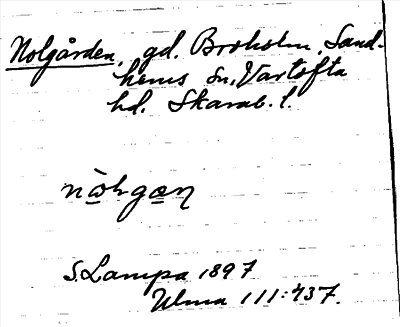 Nolgården, gd. Broholm, Sand-
hems sn, Vartofta
hd. Skarab. l.
nòhgæn
S. Lampa 1897
Ulma 111:437.